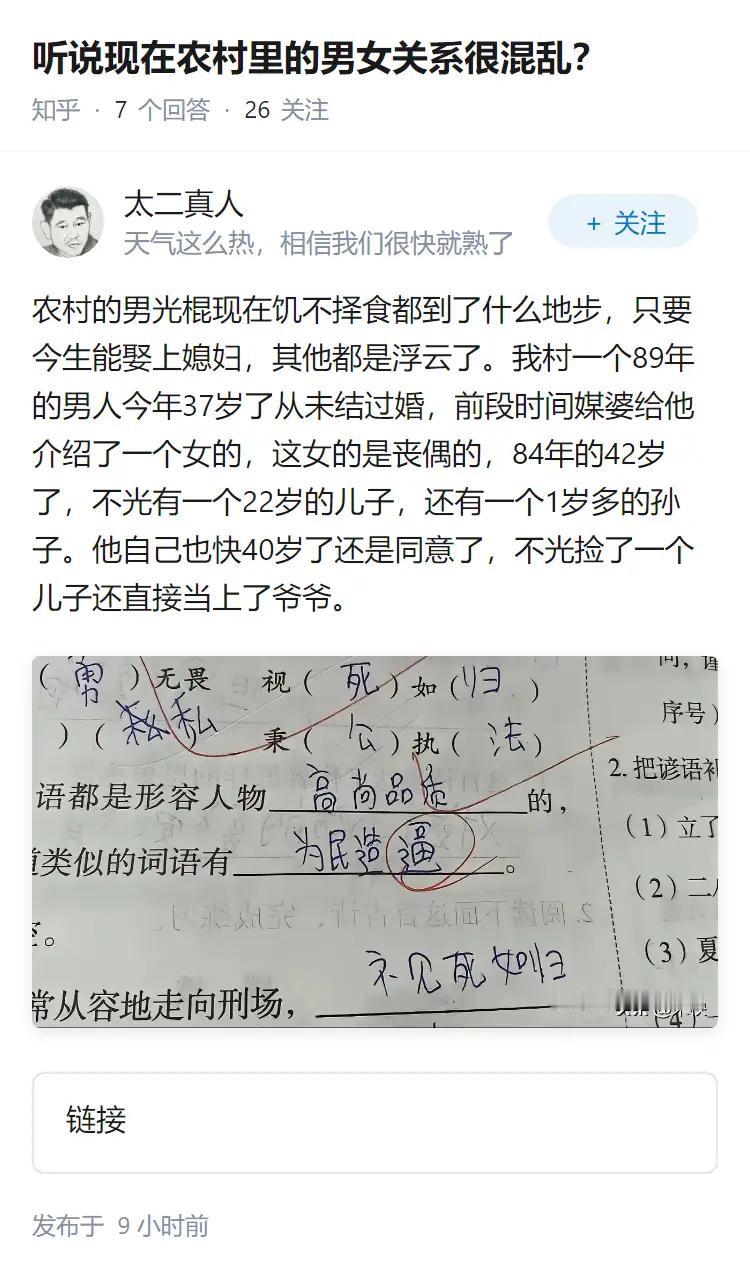 听说现在农村里的男女关系很混乱？
知乎 · 7 个回答 · 26 关注
太二真人
天气这么热，相信我们很快就熟了
+ 关注
农村的男光棍现在饥不择食都到了什么地步，只要
今生能娶上媳妇，其他都是浮云了。我村一个89年
的男人今年37岁了从未结过婚，前段时间媒婆给他
介绍了一个女的，这女的是丧偶的，84年的42岁
了，不光有一个22岁的儿子，还有一个1岁多的孙
子。他自己也快40岁了还是同意了，不光捡了一个
儿子还直接当上了爷爷。
（勇）无畏 视（死）如（归）
）（私 秉（公）执（法）
语都是形容人物高尚品质的，
类似的词语有为民造逼。
。
常从容地走向刑场，视死如归
序号）
2. 把谚语补
（1）立了
（2）二八
（3）夏
（4）
链接
发布于 9 小时前